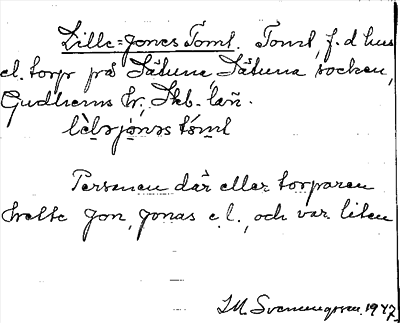 Lille=Jones Tomt. Tomt, f. d. hus
el. torp på Sätuna, Sätuna socken,
Gudhems hr, Skb. län.
lèləjònəs tómt
Personen där eller torparen
hette Jon, Jonas e.l., och var liten
S.M. Svenungsson 1947